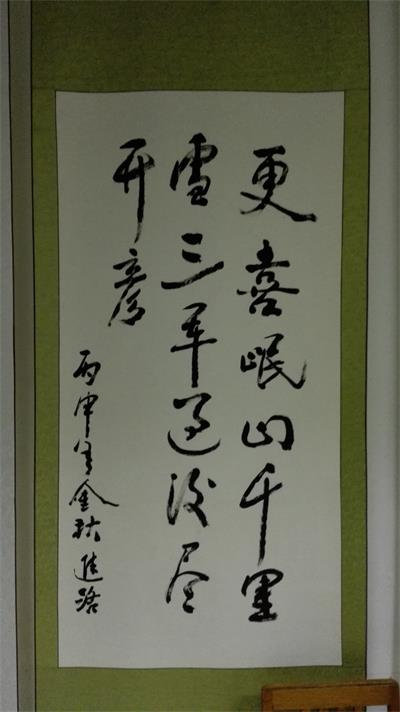 更喜岷山千里
雪三军过后尽
开彦
丙申年金秋進路